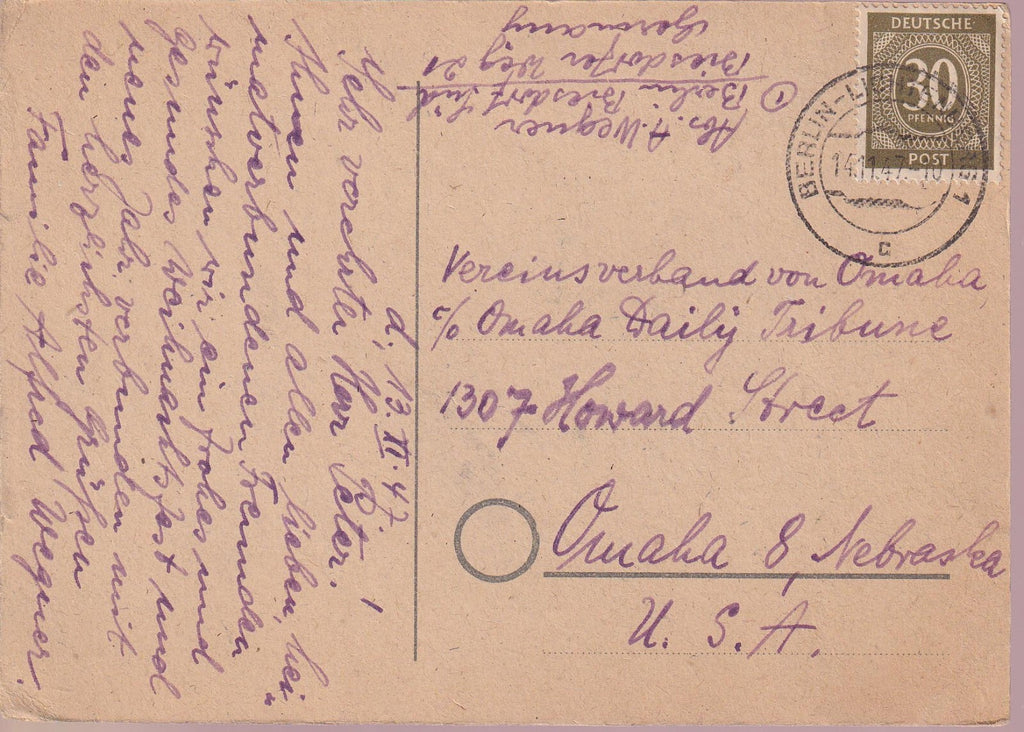 DEUTSCHE
30
PFENNIG
POST
14.11.47.-10
C
Abs. A. Wegner
① Berlin Biesdorf Süd
Biesdorfer Weg 21
Germany
Vereinsverband von Omaha
c/o Omaha Daily Tribune
1307 Howard Street
Omaha 8, Nebraska
U. S. A.
d. 13. XI. 47.
Sehr verehrter Herr Peter!
Ihnen und allen lieben, hei-
matverbundenen Freunden
wünschen wir ein frohes und
gesundes Weihnachtsfest und
neues Jahr verbunden mit
den herzlichsten Grüßen
Familie Alfred Wegner.